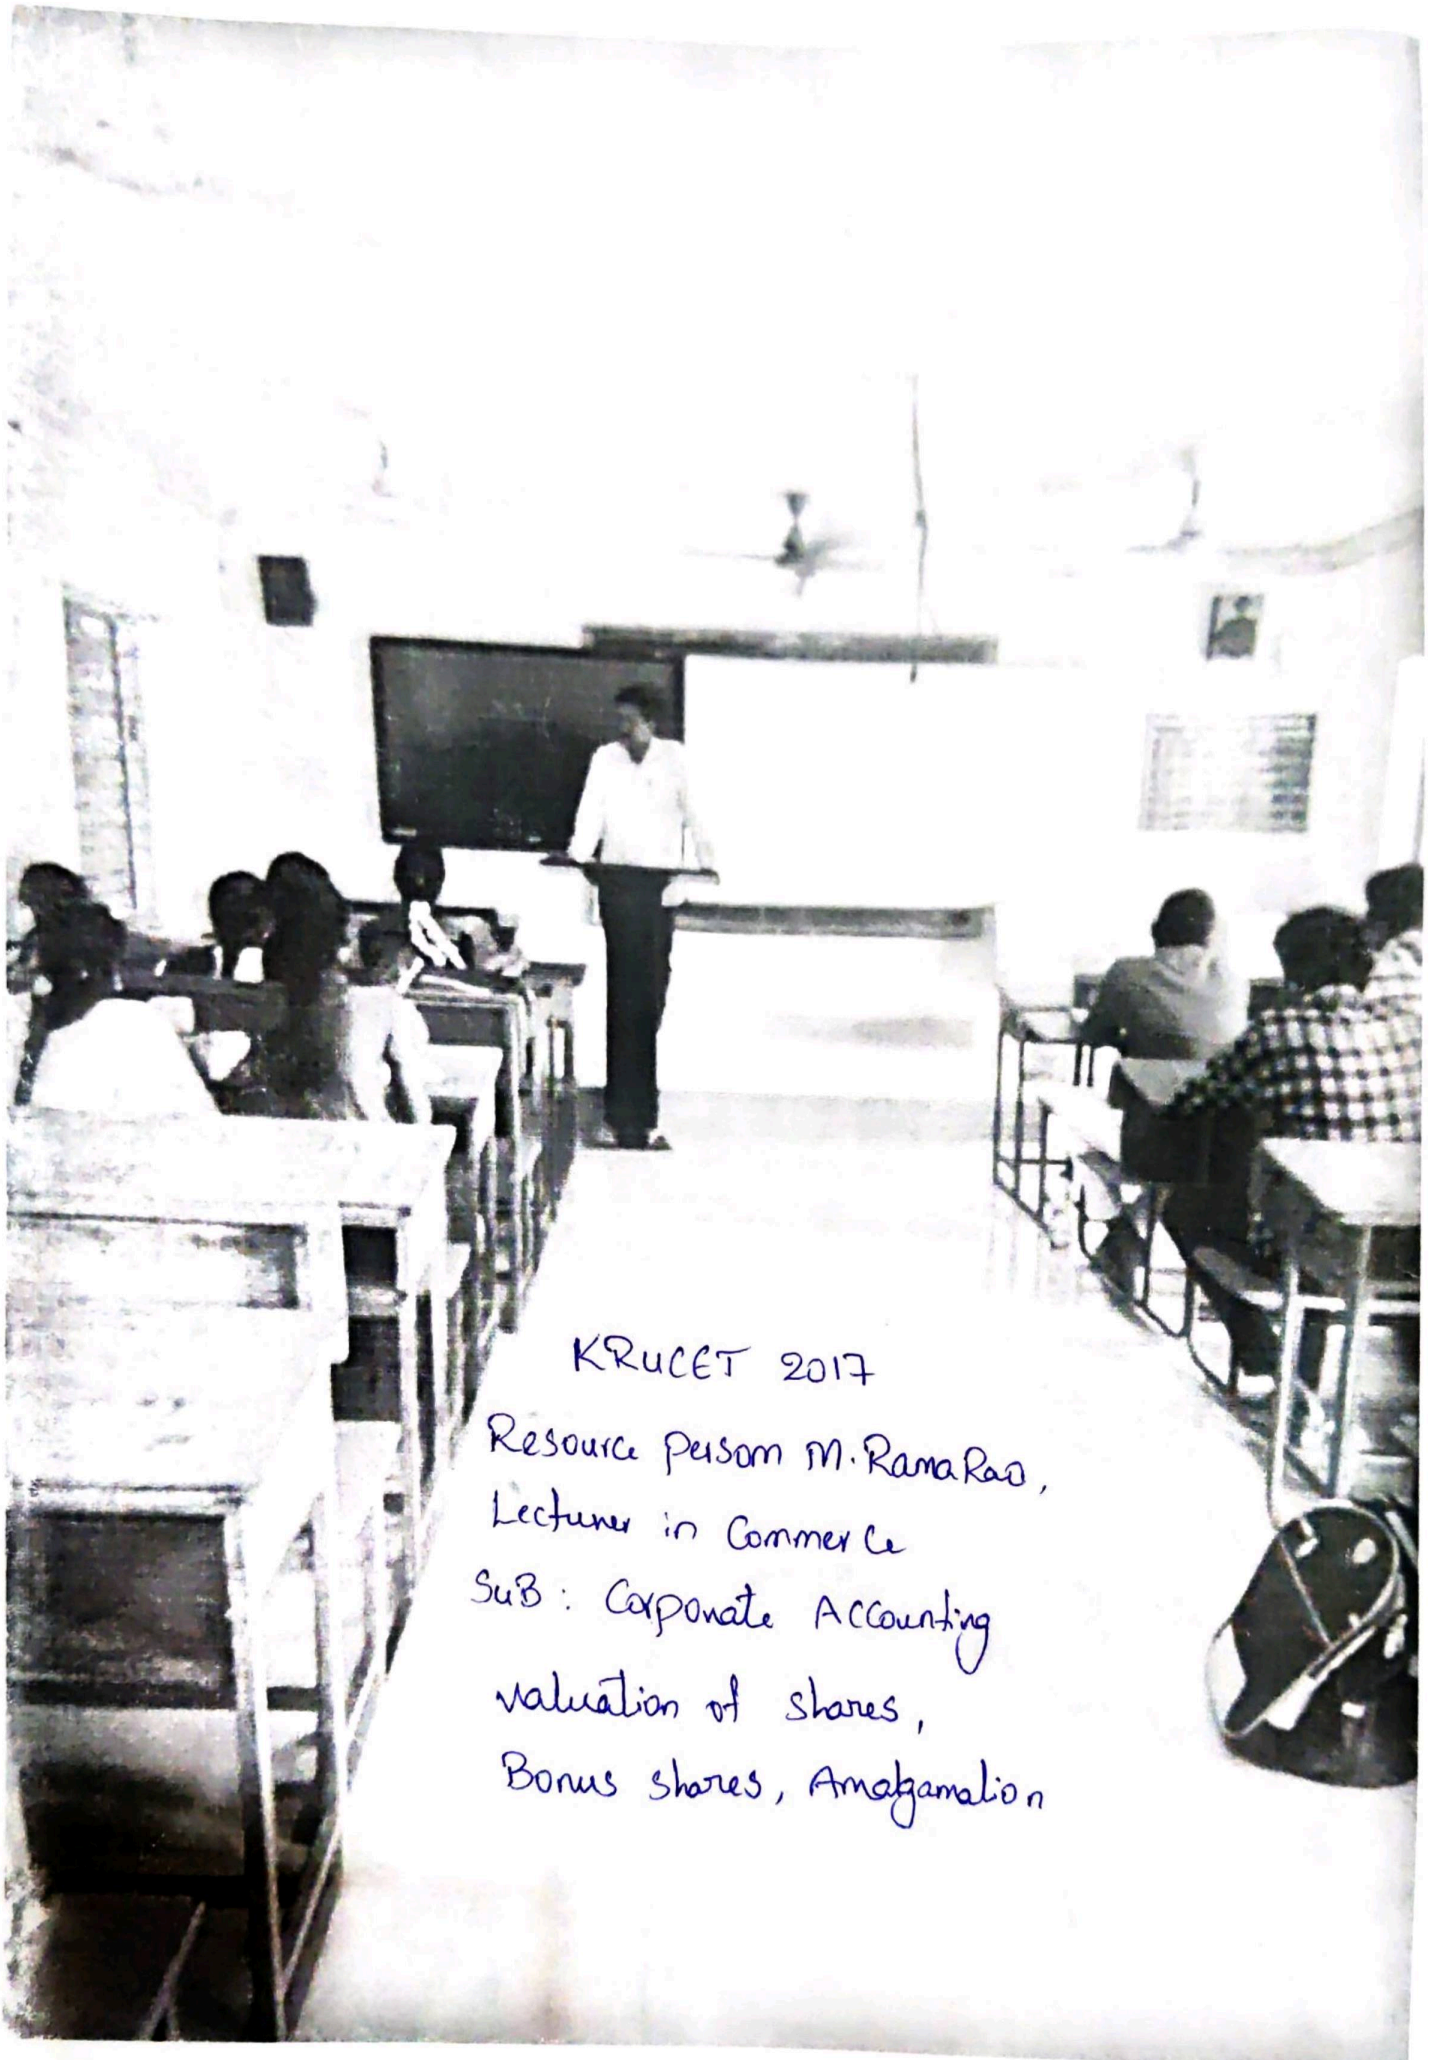 KRUCET 2017
Resource person M. Rama Rao,
Lecturer in Commerce
SuB : Corporate Accounting
valuation of shares,
Bonus shares, Amalgamation